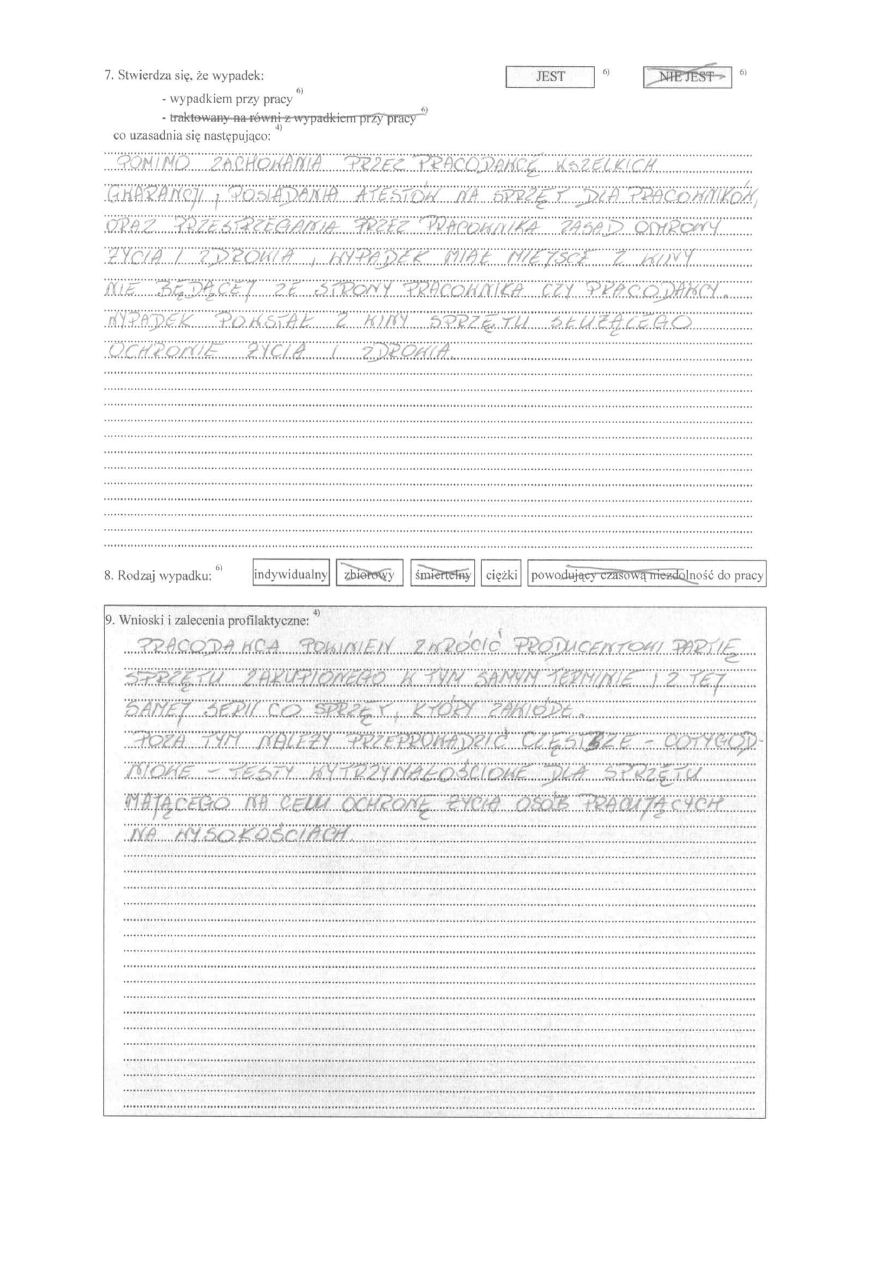 7. Stwierdza się, że wypadek: JEST 6) NIE JEST 6)
- wypadkiem przy pracy 6)
- traktowany na równi z wypadkiem przy pracy 6)
co uzasadnia się następująco: 4)
POMIMO ZACHOWANIA PRZEZ PRACODAWCĘ WSZELKICH
GWARANCJI, POSIADANIA ATESTÓW NA SPRZĘT DLA PRACOWNIKÓW,
ORAZ PRZESTRZEGANIA PRZEZ PRACOWNIKA ZASAD OCHRONY
ŻYCIA I ZDROWIA, WYPADEK MIAŁ MIEJSCE Z WINY
NIE BĘDĄCEJ ZE STRONY PRACOWNIKA CZY PRACODAWCY.
WYPADEK POWSTAŁ Z WINY SPRZĘTU SŁUŻĄCEGO
OCHRONIE ŻYCIA I ZDROWIA.
8. Rodzaj wypadku: 6) indywidualny zbiorowy śmiertelny ciężki powodujący czasową niezdolność do pracy
9. Wnioski i zalecenia profilaktyczne: 4)
PRACODAWCA POWINIEN ZWRÓCIĆ PRODUCENTOWI PARTIĘ
SPRZĘTU ZAKUPIONEGO W TYM SAMYM TERMINIE I Z TEJ
SAMEJ SERII CO SPRZĘT, KTÓRY ZAWIÓDŁ.
POZA TYM NALEŻY PRZEPROWADZIĆ CZĘSTSZE - COTYGOD-
NIOWE - TESTY WYTRZYMAŁOŚCIOWE DLA SPRZĘTU
MAJĄCEGO NA CELU OCHRONĘ ŻYCIA OSÓB PRACUJĄCYCH
NA WYSOKOŚCIACH.